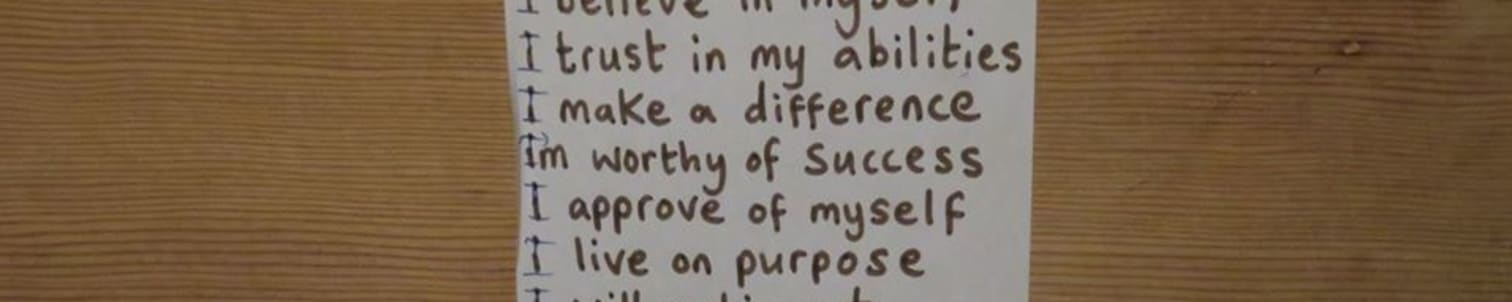 I believe in myself
I trust in my abilities
I make a difference
I'm worthy of success
I approve of myself
I live on purpose
I will